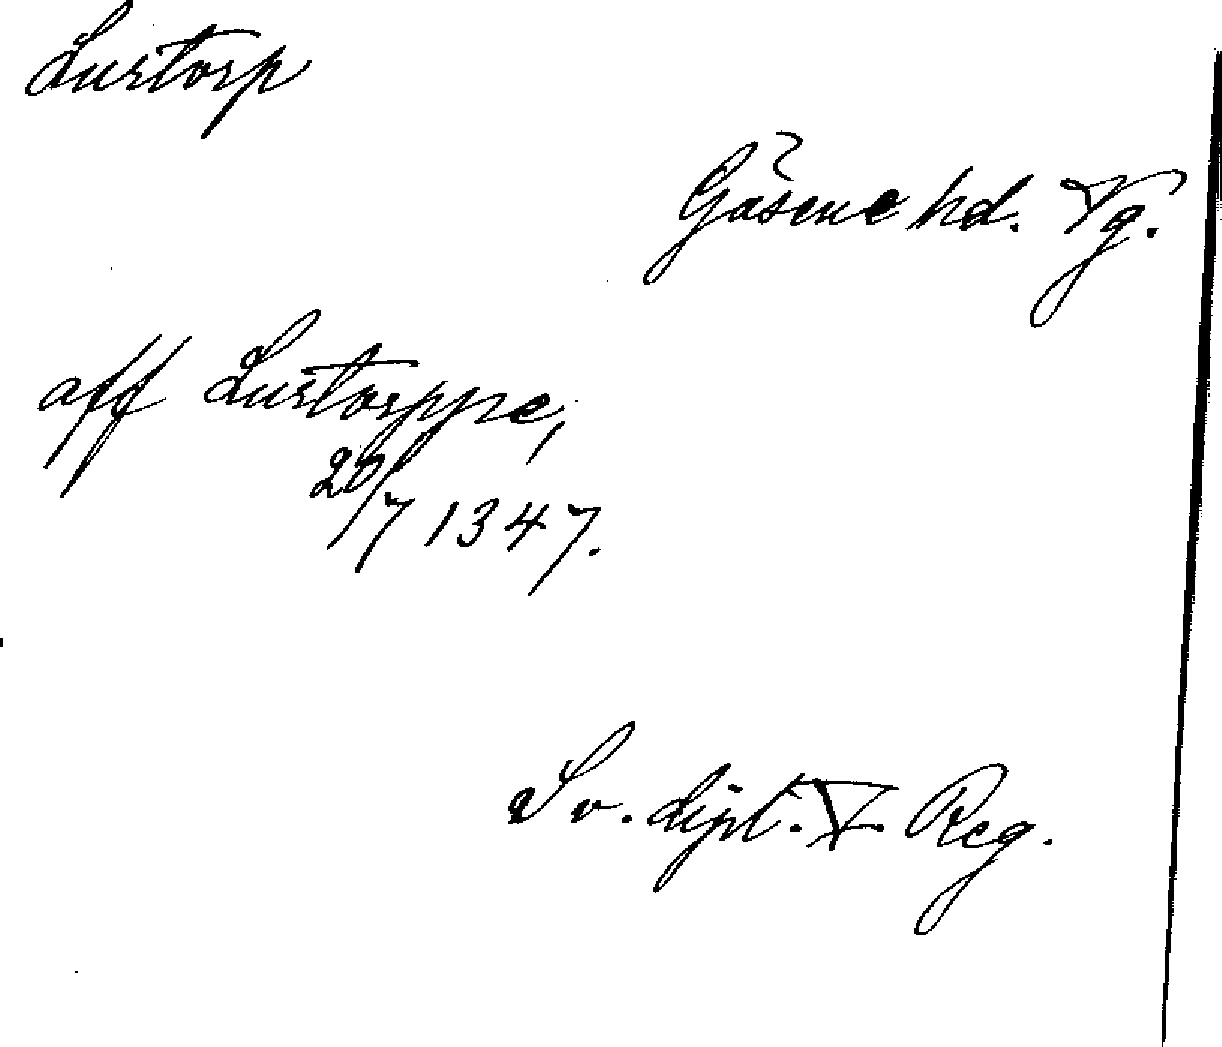 Lustorp
?
Gäsene hd. Vg.
aff Lustorppe,
20/7 1347.
Sv. dipl. V. Reg.